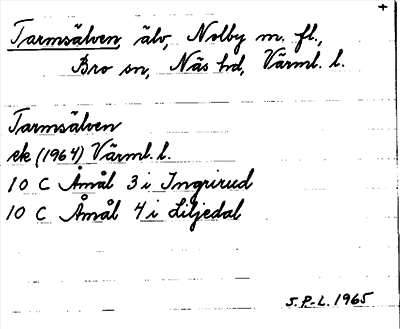 +
Tarmsälven, älv, Nolby m. fl.,
Bro sn, Näs hd, Värml. l.
Tarmsälven
ek (1964) Värml. l.
10 C Åmål 3 i Ingrirud
10 C Åmål 4 i Liljedal
S.P-L. 1965